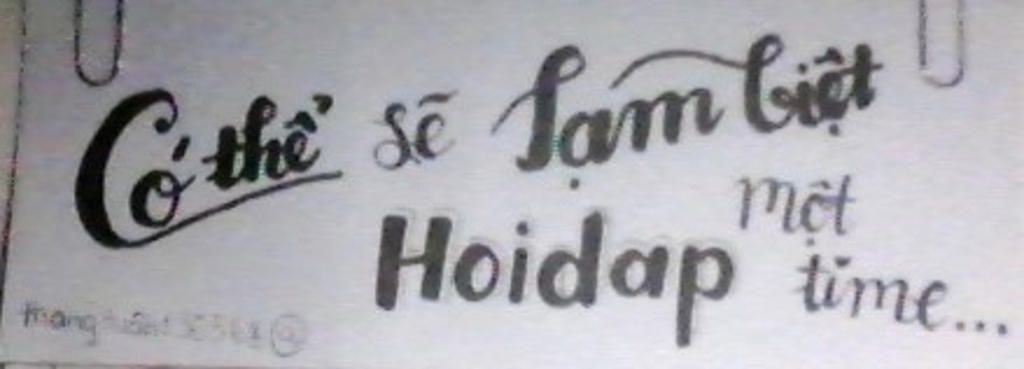 Có thể sẽ Tạm biệt
một
Hoidap time...